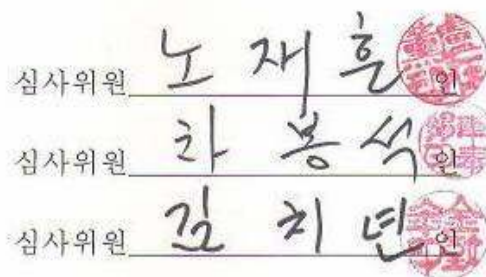 심사위원 노 재 훈 인
심사위원 차 봉 석 인
심사위원 김 치 년 인